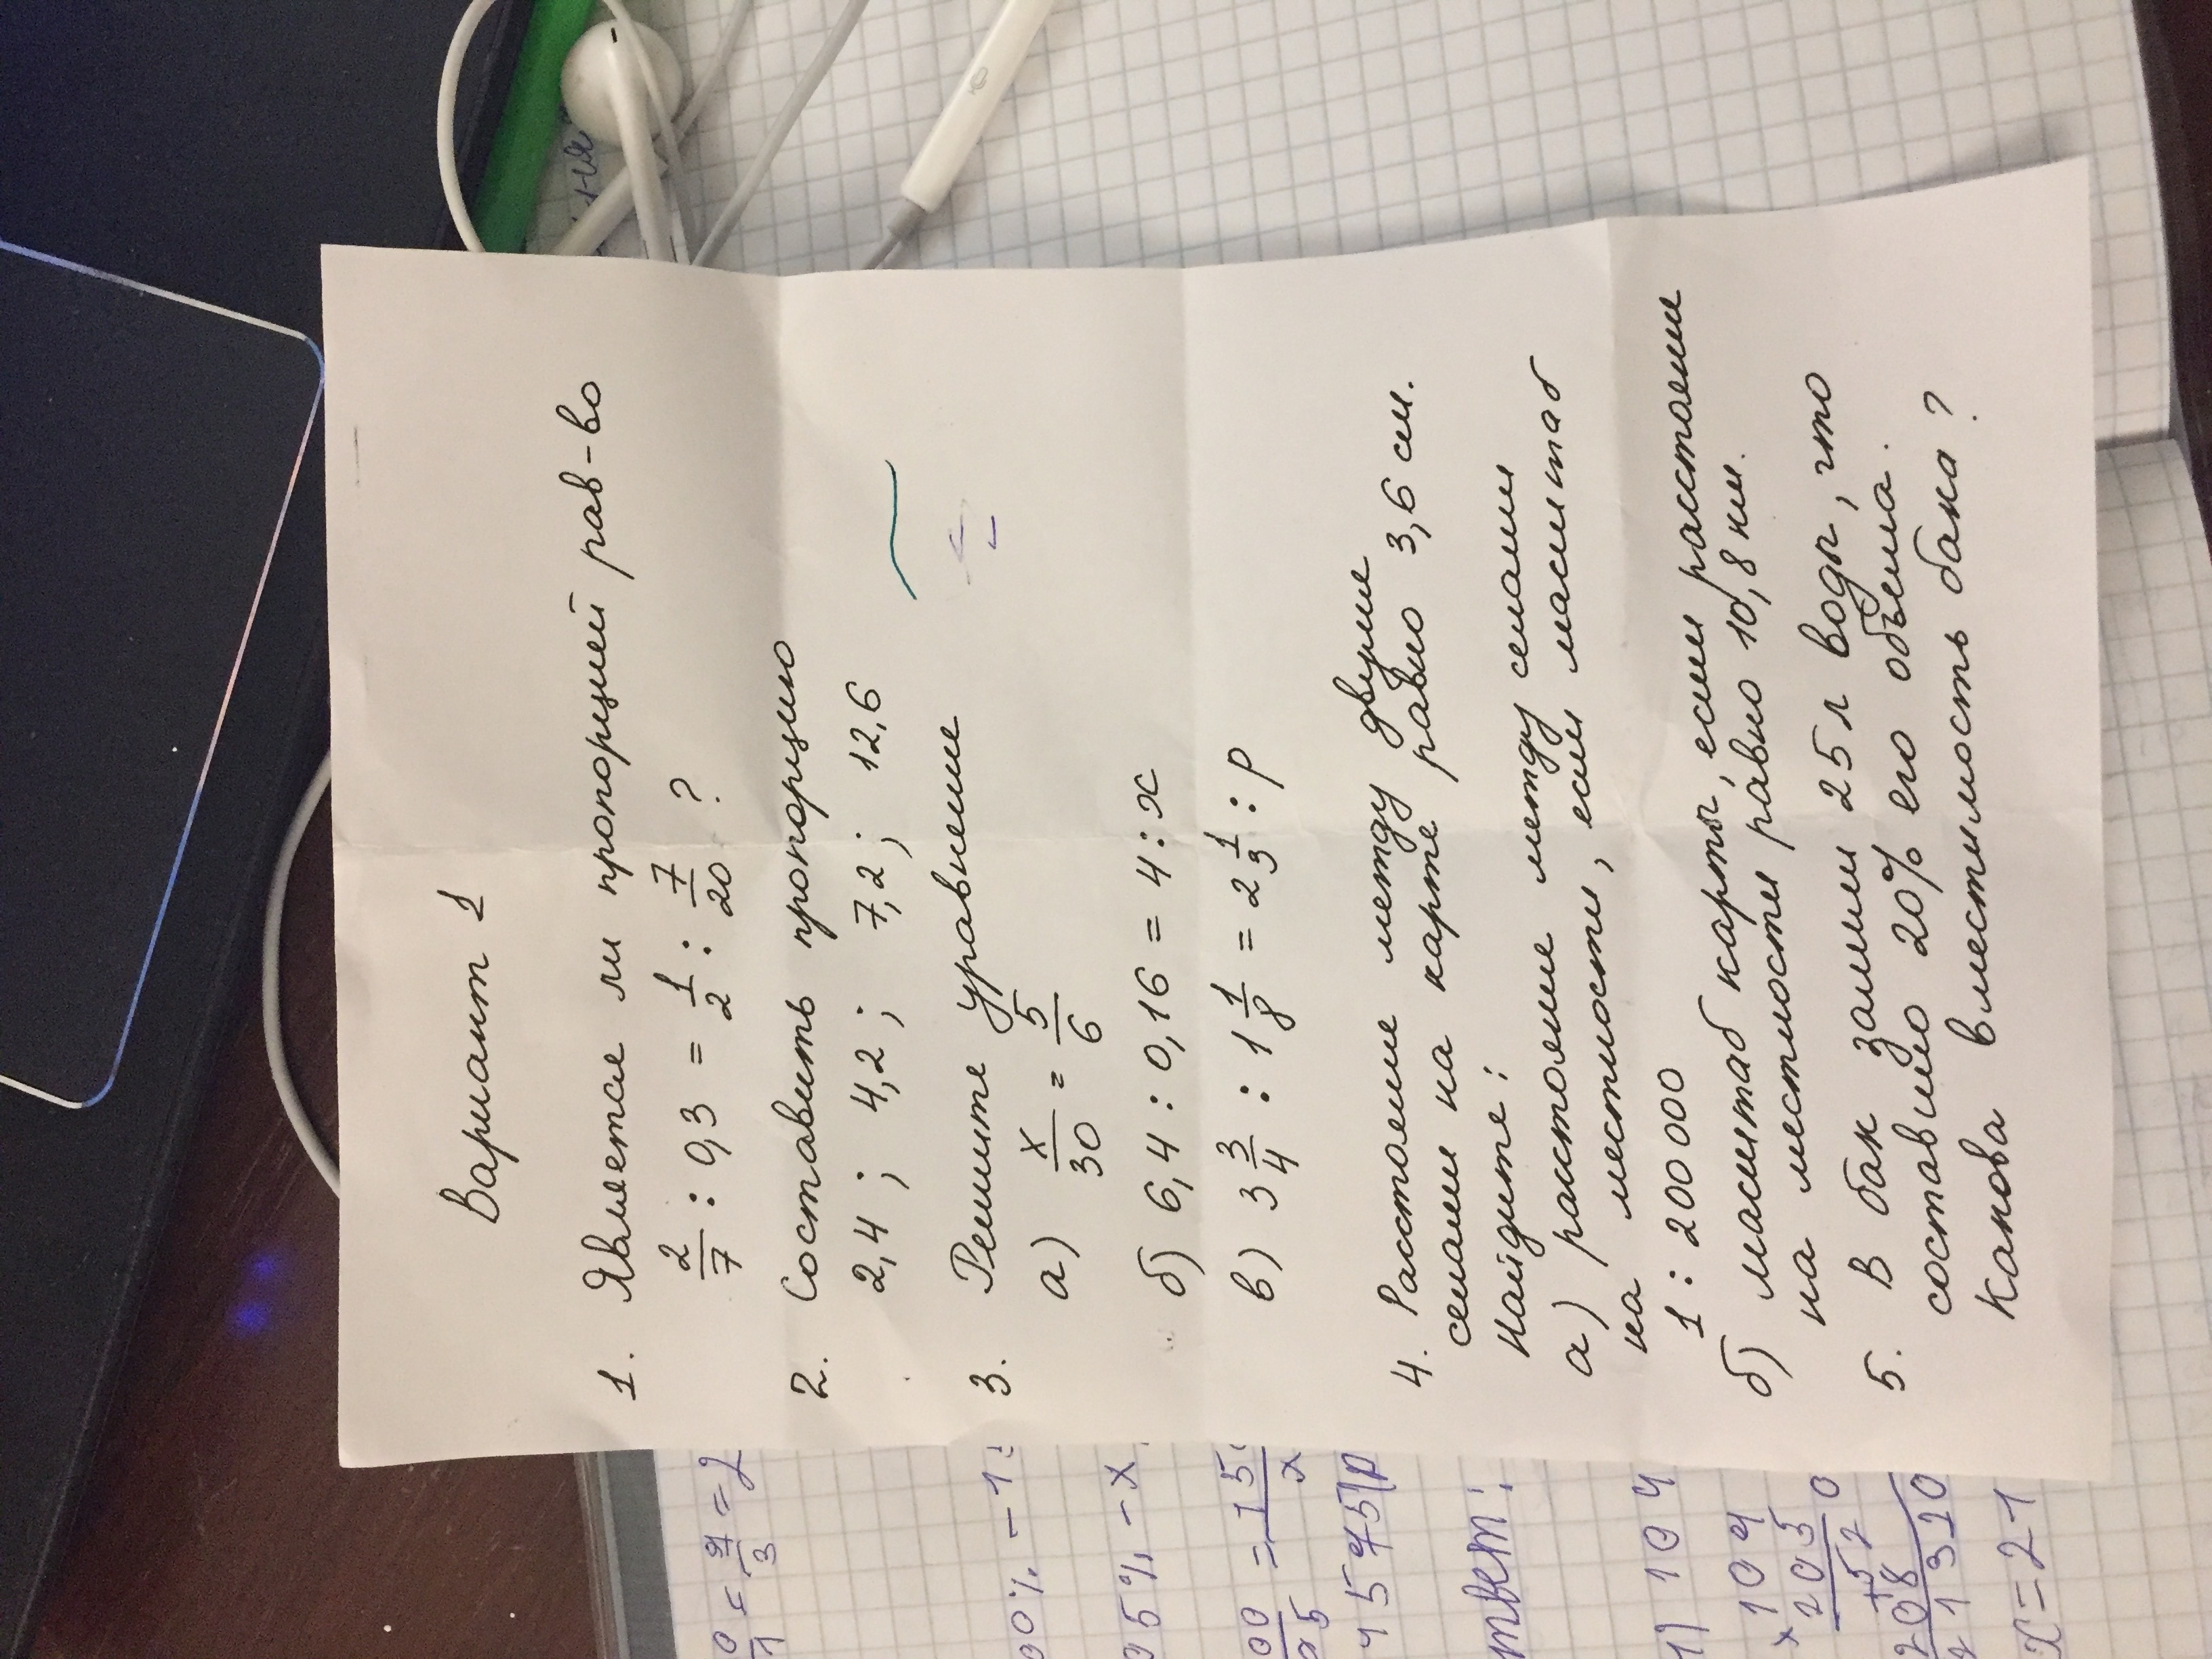 Вариант 1
1. Является ли пропорцией рав-во
2/7 : 0,3 = 1/2 : 7/20 ?
2. Составить пропорцию
2,4 ; 4,2 ; 7,2 ; 12,6
3. Решите уравнение
а) x/30 = 5/6
б) 6,4 : 0,16 = 4 : x
в) 3 3/4 : 1 1/8 = 2 1/3 : p
4. Расстояние между двумя
селами на карте равно 3,6 см.
Найдите :
а) расстояние между селами
на местности, если масштаб
1 : 200 000
б) масштаб карты, если расстояние
на местности равно 10,8 км.
5. В бак залили 25 л воды, что
составило 20% его объема.
Какова вместимость бака ?
25% - x
45 75 | p
твет:
1) 104
x 104
205
520
208
21320
x = 21